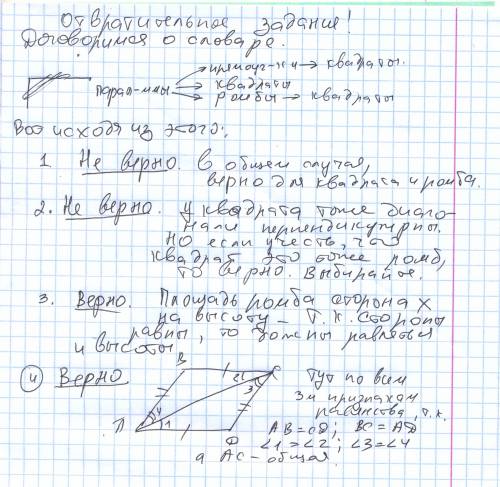 Отвратительное задание!
Договоримся о словаре.
прямоуг-ки → квадраты.
парал-ммы → квадраты
ромбы → квадраты
Вот исходя из этого:
1. Не верно. В общем случая,
верно для квадрата и ромба.
2. Не верно. У квадрата тоже диаго-
нали перпендикулярны.
Но если учесть, что
квадрат это тоже ромб,
то верно. Выбирайте.
3. Верно. Площадь ромба сторона х
на высоту – т.к. стороны
равны, то должны равняться
и высоты
4 Верно
B C
2 3
A 4 1 D
Тут по всем
3м признакам
равенства, т.к.
AB = CD; BC = AD
∠1 = ∠2; ∠3 = ∠4
а AC – общая.